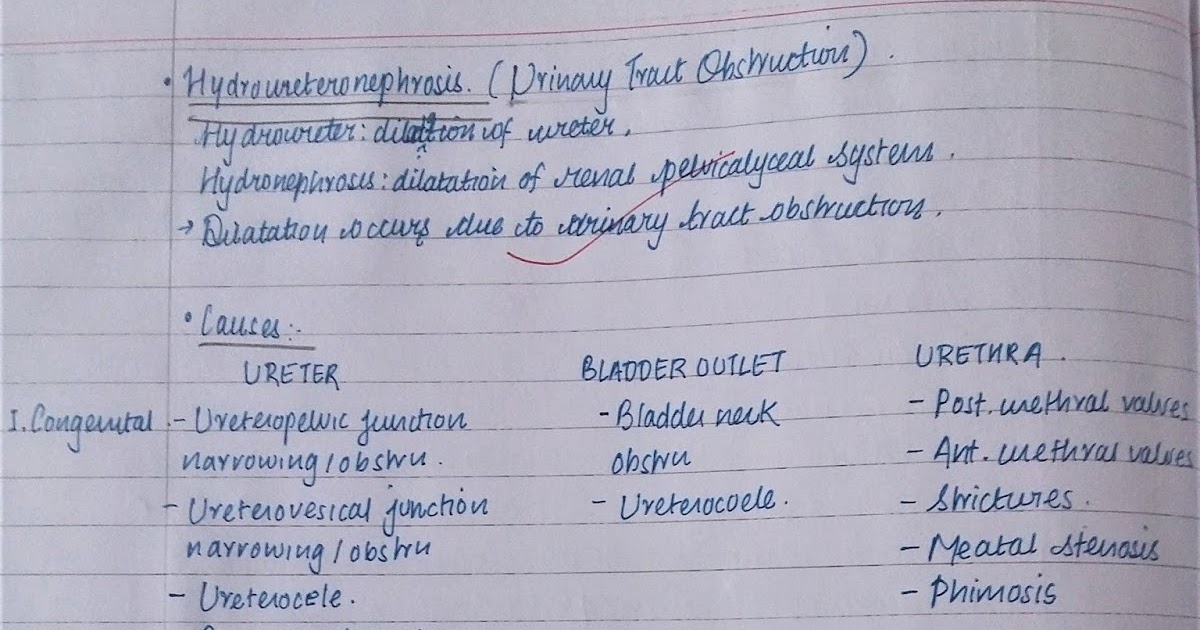 • Hydroureteronephrosis. (Urinary Tract Obstruction).
Hydroureter: dilation of ureter.
Hydronephrosis: dilatation of renal pelvicalyceal system.
→ Dilatation occurs due to urinary tract obstruction.
• Causes:-
URETER BLADDER OUTLET URETHRA.
I. Congenital - Ureteropelvic junction - Bladder neck - Post. urethral valves
narrowing/obstru. obstru - Ant. urethral valves
- Ureterovesical junction - Ureterocoele. - Strictures.
narrowing/obstru - Meatal stenosis
- Ureterocele. - Phimosis